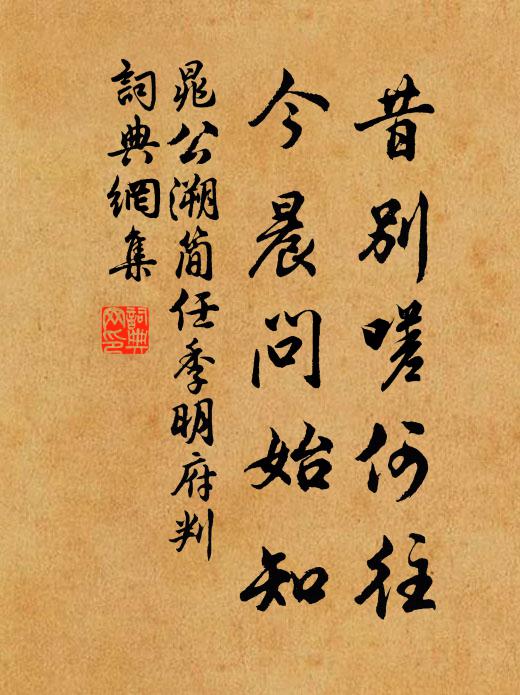 昔别嗟何往
今晨问始知
晁公溯简任季明府判
詞典網集
詞典網印